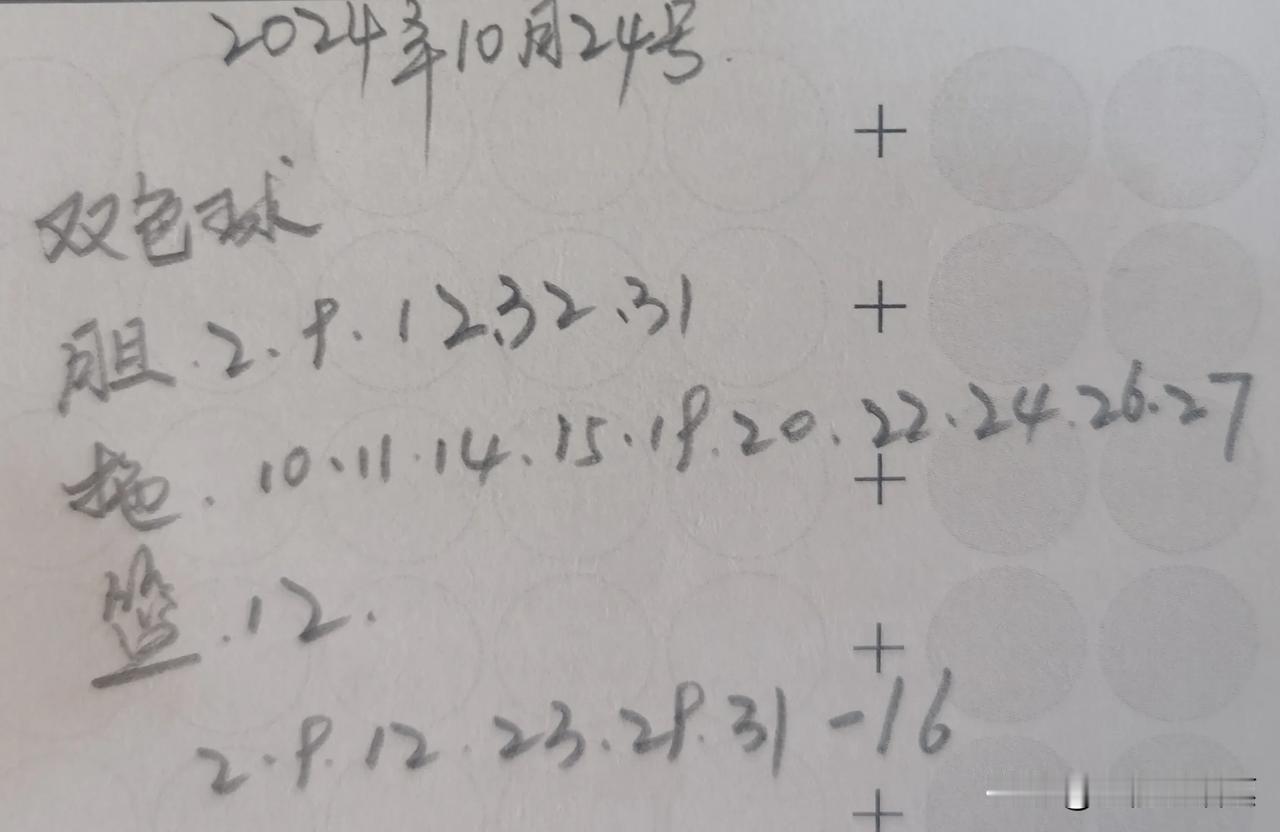 2024年10月24号.
双色球
胆.2.9.12、32、31
拖.10、11.14、15.19.20.22.24.26.27
蓝.12.
2.9.12.23.29.31-16